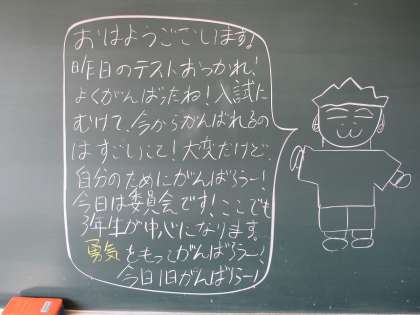 おはようございます!
昨日のテストおつかれ!
よくがんばったね!入試に
むけて、今からがんばれるの
はすごいこと!大変だけど、
自分のためにがんばろうー!
今日は委員会です!ここでも
3年生が中心になります。
勇気をもってがんばろうー!
今日1日がんばろー!